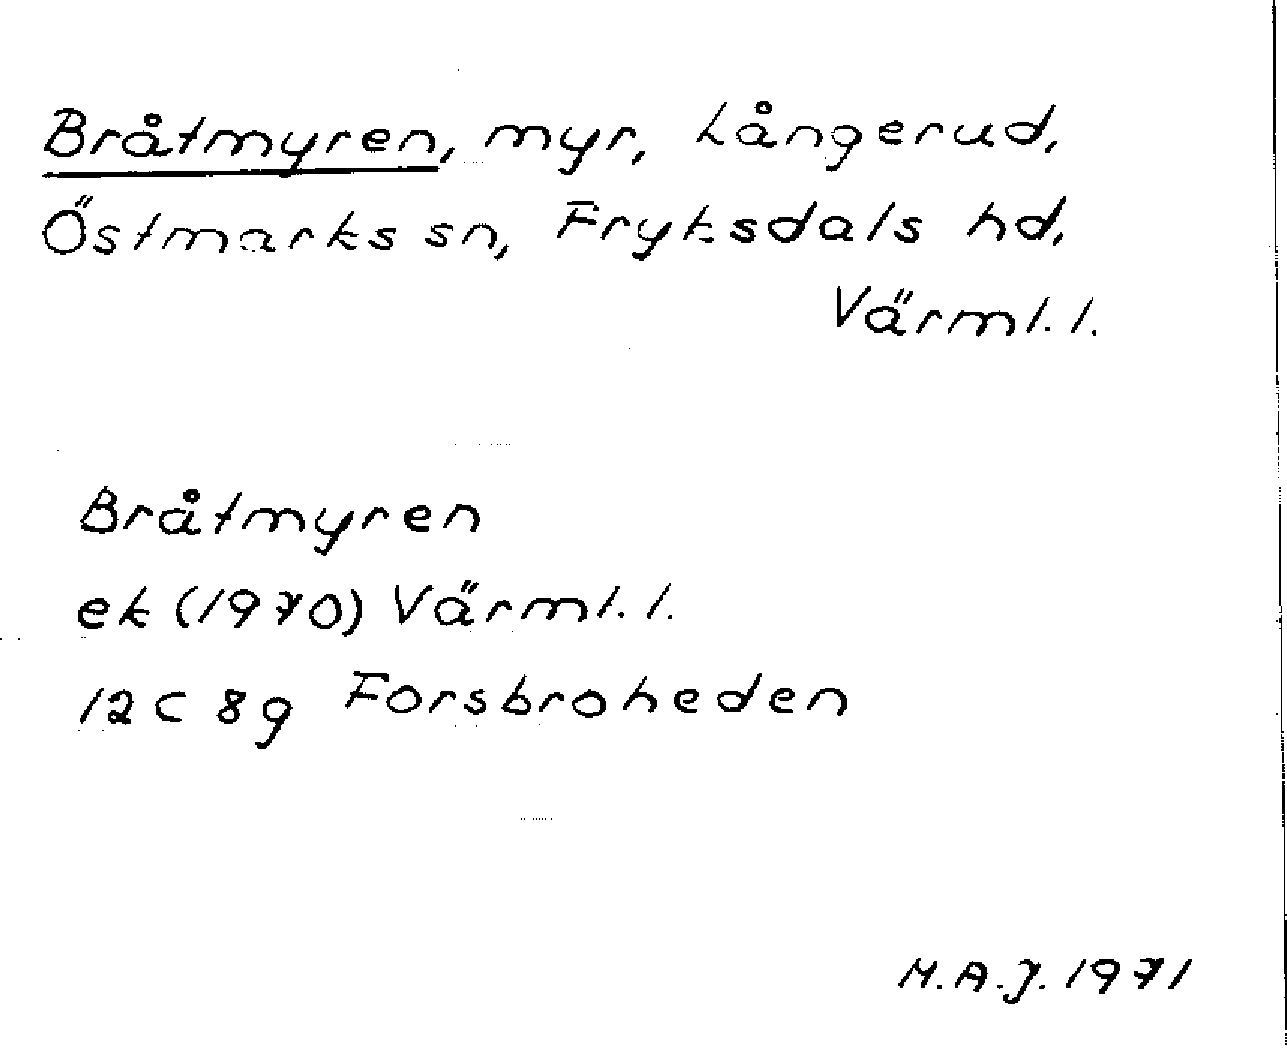 Bråtmyren, myr, Långerud,
Östmarks sn, Fryksdals hd,
Värml. l.
Bråtmyren
ek (1970) Värml. l.
12 C 8g Forsbroheden
M.A.J. 1971